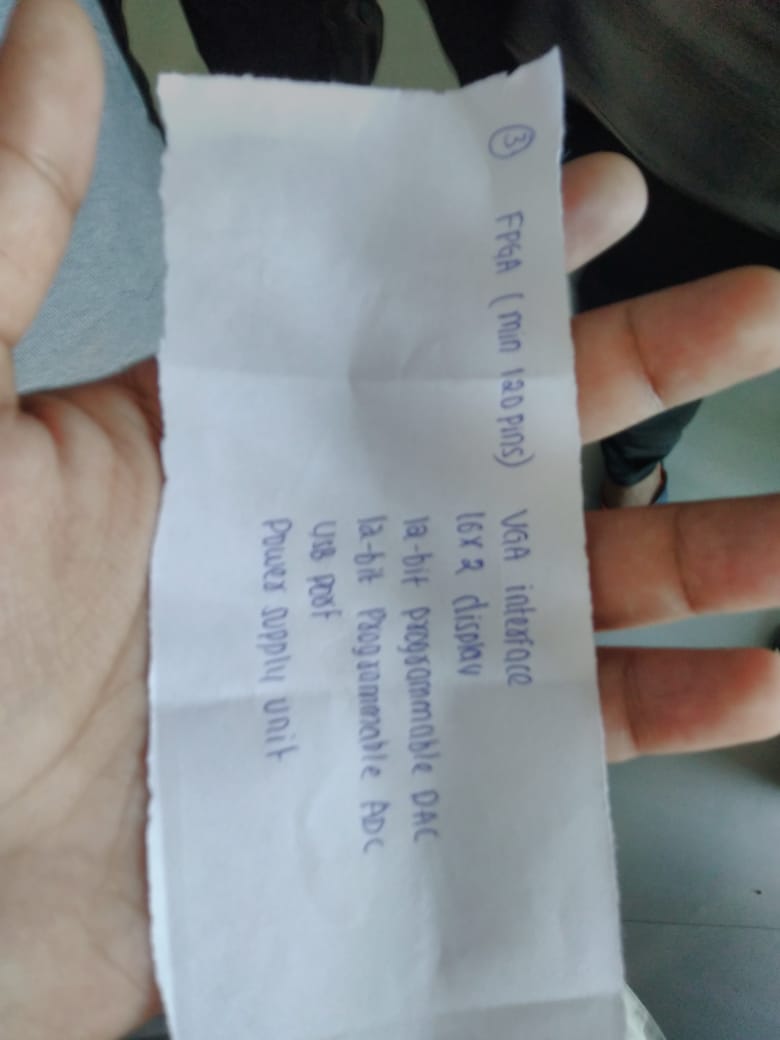 ③ FPGA (min 120 pins) VGA interface
16x2 display
12-bit programmable DAC
12-bit Programmable ADC
USB port
Power supply unit